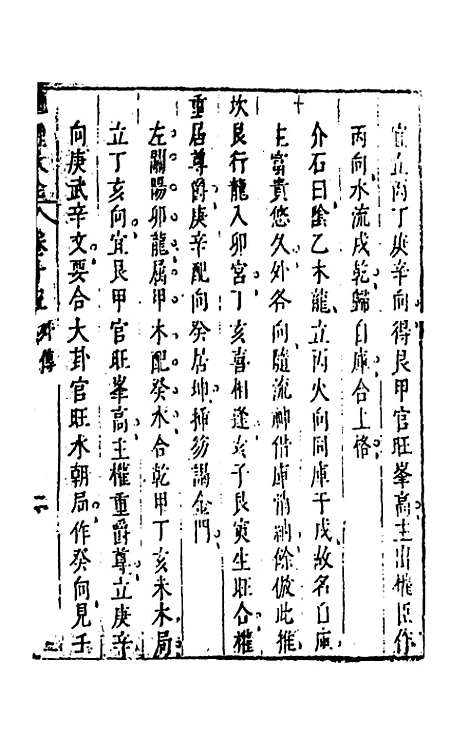 宜立丙丁庚辛向得艮甲官旺峯高主出權臣作
丙向水流戌乾歸自庫合上格
介石曰陰乙木龍立丙火向同庫于戌故名自庫
主富貴悠久外各向隨流神借庫消納餘倣此推
坎艮行龍入卯宫丁亥喜相逢亥子艮寅生旺合權
重居尊爵庚辛配向癸居坤搢笏謁金門
左關陽卯龍屬甲木配癸水合乾甲丁亥未木局
立丁亥向宜艮甲官旺峯高主權重爵尊立庚辛
向庚武辛文要合大卦官旺水朝局作癸向見壬
卷十
二